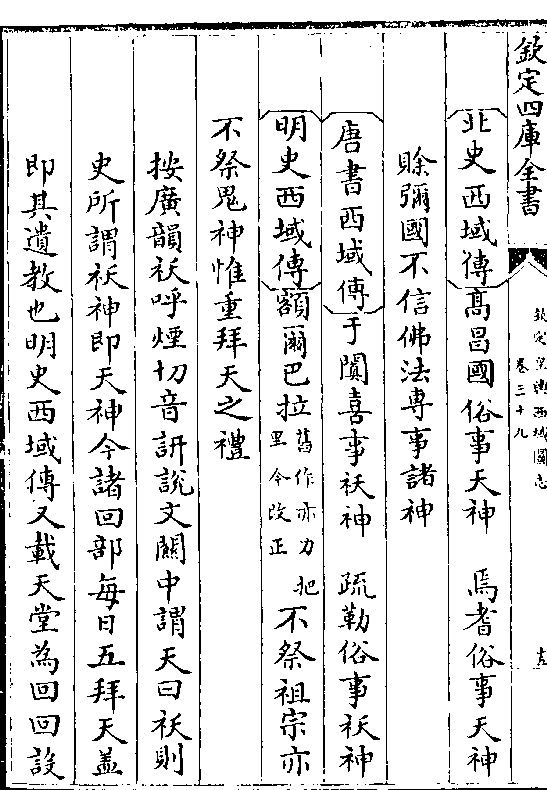 欽定四庫全書
欽定皇輿西域圖志
卷三十九
北史西域傳高昌國俗事天神　焉耆俗事天神
賒彌國不信佛法專事諸神
唐書西域傳于闐喜事祅神　疏勒俗事祅神
明史西域傳額爾巴拉舊作亦力把里今改正不祭祖宗亦
不祭鬼神惟重拜天之禮
按廣韻祅呼煙切音訮說文關中謂天曰祅則
史所謂祅神即天神今諸回部每日五拜天蓋
即其遺教也明史西域傳又載天堂為回回設